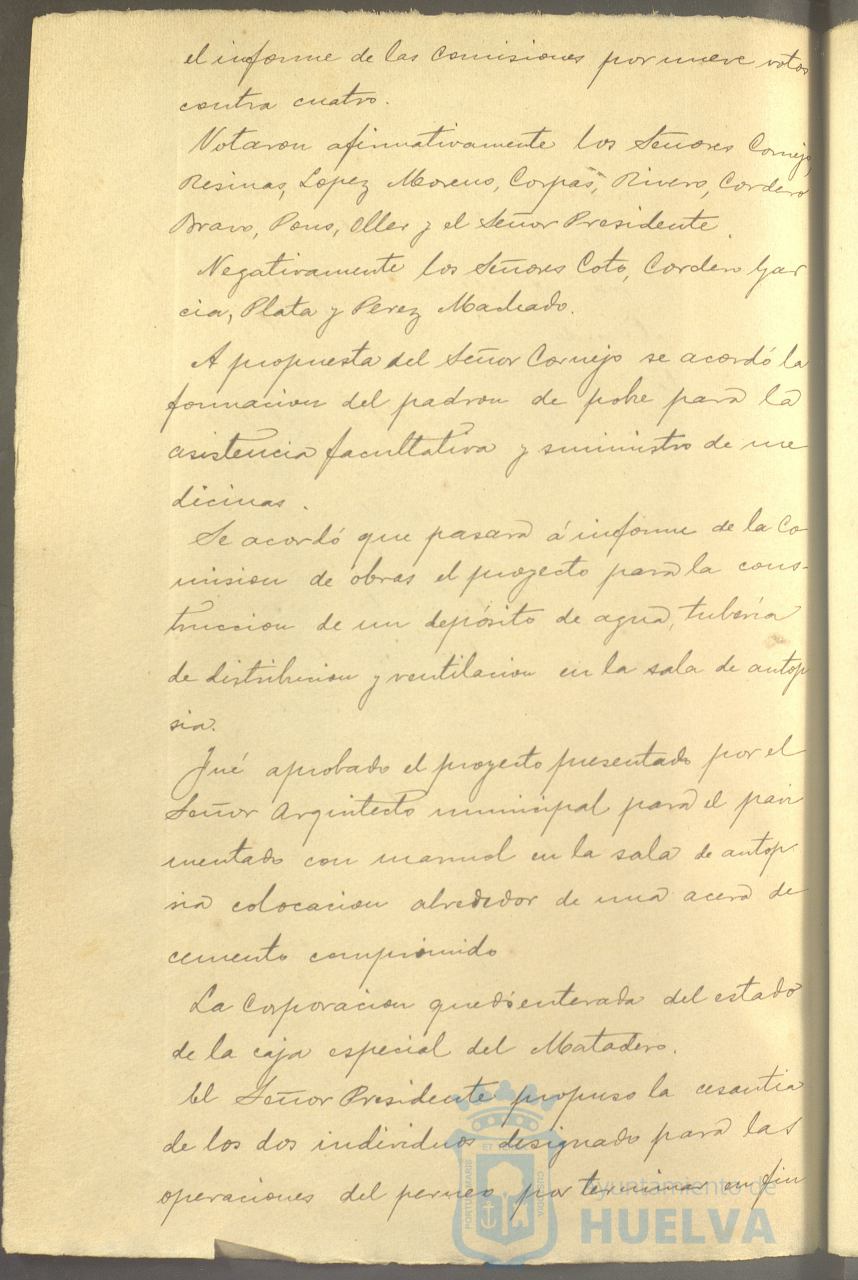 el informe de las Comisiones por nueve votos
contra cuatro.
Votaron afirmativamente los Señores Cornejo,
Resinas, Lopez Moreno, Corpas, Rivero, Cordero
Bravo, Pons, Oller y el Señor Presidente.
Negativamente los Señores Coto, Cordero Gar
cia, Plata y Perez Machado.
A propuesta del Señor Cornejo se acordó la
formacion del padron de pobre para la
asistencia facultativa y suministro de me
dicinas.
Se acordó que pasara á informe de la Co
mision de obras el proyecto para la cons-
truccion de un depósito de agua, tubería
de distribucion y ventilacion en la sala de autop
sia.
Fué aprobado el proyecto presentado por el
Señor Arquitecto municipal para el pavi
mentado con marmol en la sala de autop-
sia colocacion alrededor de una acera de
cemento comprimido
La Corporacion quedó enterada del estado
de la caja especial del Matadero.
El Señor Presidente propuso la cesantia
de los dos individuos designado para las
operaciones del perneo por terminar en fin
Ayuntamiento de
HUELVA